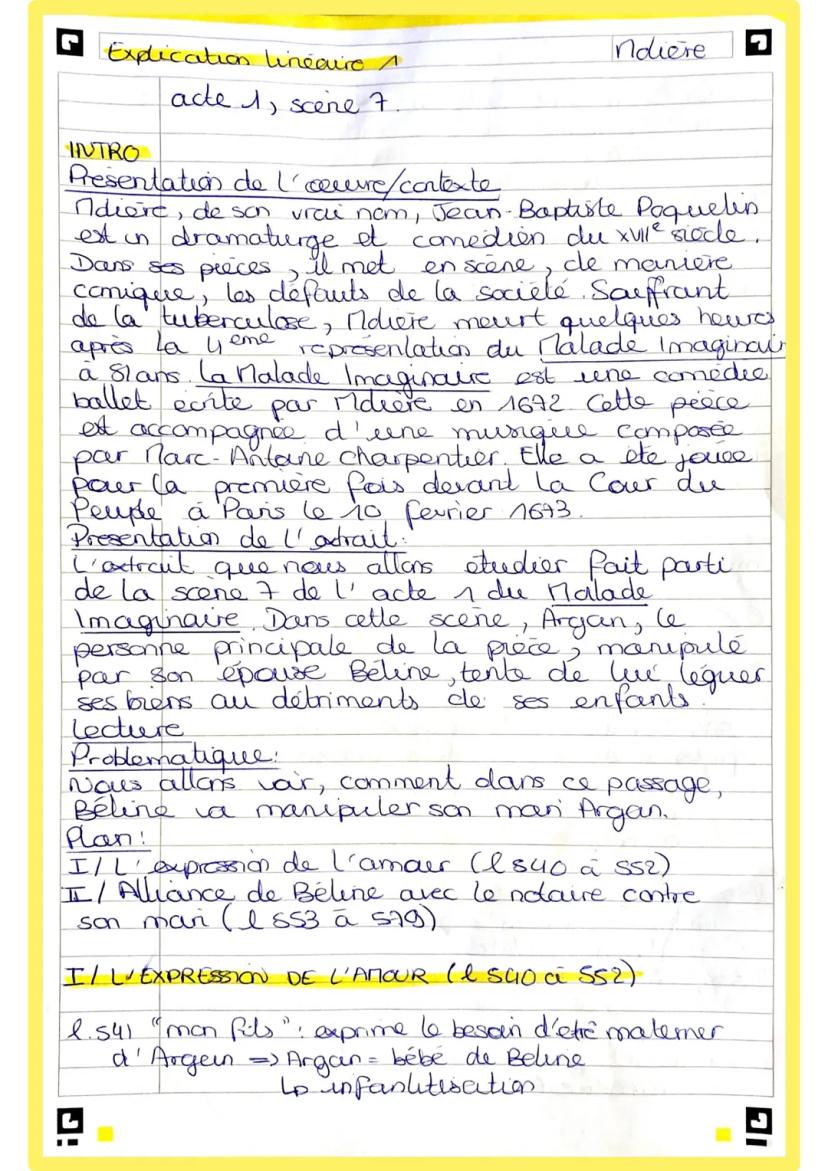 Explication linéaire 1
Molière
acte 1, scène 7.
INTRO
Présentation de l'oeuvre/contexte
Molière, de son vrai nom, Jean-Baptiste Poquelin
est un dramaturge et comédien du XVIIe siècle.
Dans ses pièces, il met en scène, de manière
comique, les défauts de la société. Souffrant
de la tuberculose, Molière meurt quelques heures
après la 4ème représentation du Malade Imaginair
à 51ans. La Malade Imaginaire est une comédie
ballet écrite par Molière en 1672. Cette pièce
est accompagnée d'une musique composée
par Marc-Antoine Charpentier. Elle a été jouée
pour la première fois devant la Cour du
Peuple à Paris le 10 février 1673.
Présentation de l'extrait:
L'extrait que nous allons étudier fait parti
de la scène 7 de l'acte 1 du Malade
Imaginaire. Dans cette scène, Argan, le
personne principale de la pièce, manipulé
par son épouse Béline, tente de lui léguer
ses biens au détriments de ses enfants.
Lecture
Problématique:
Nous allons voir, comment dans ce passage,
Béline va manipuler son mari Argan.
Plan:
I/ L'expression de l'amour (l 540 à 552)
II/ Alliance de Béline avec le notaire contre
son mari (l 553 à 579)
I/ L'EXPRESSION DE L'AMOUR (l 540 à 552)
l.541 "mon fils": exprime le besoin d'etre materner
d'Argan => Argan = bébé de Béline
↳ infantilisation